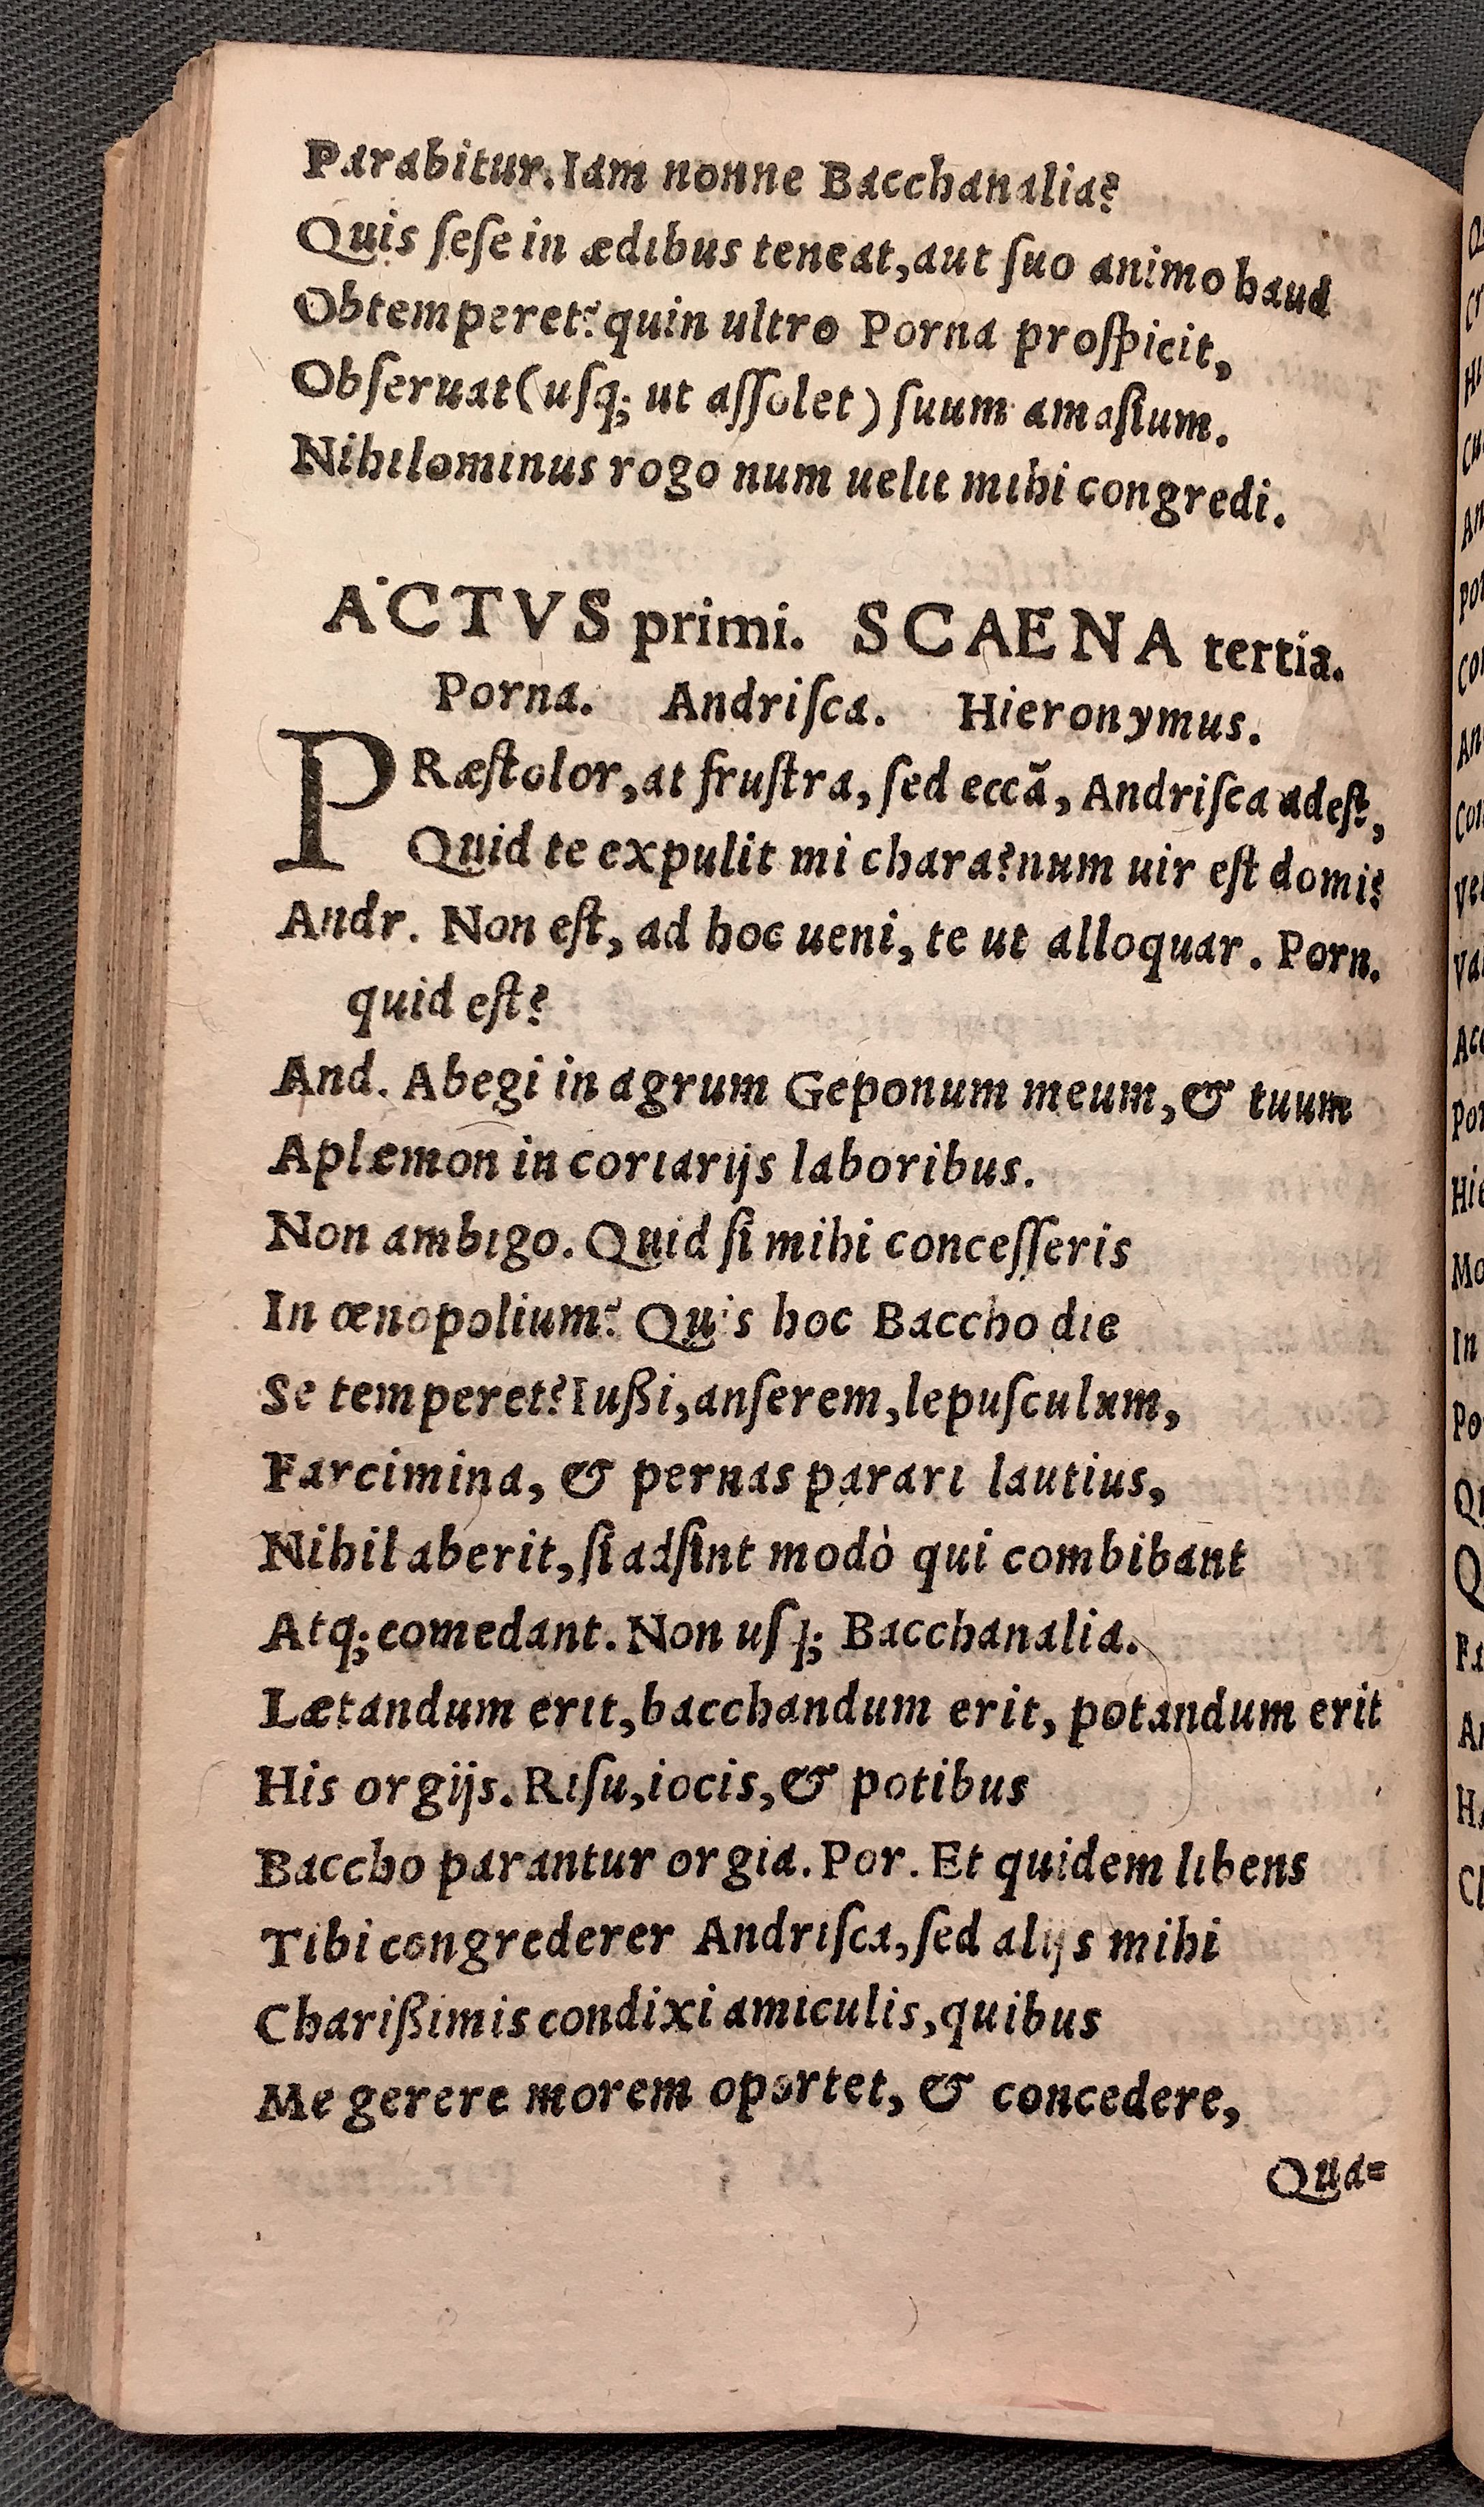 Parabitur. Iam nonne Bacchanalia?
Quis ſeſe in ædibus teneat, aut ſuo animo haud
Obtemperet? quin ultro Porna proſpicit,
Obſeruat (uſq; ut aſſolet) ſuum amaſium.
Nihilominus rogo num uelit mihi congredi.
ACTVS primi. SCAENA tertia.
Porna. Andriſca. Hieronymus.
PRæſtolor, at fruſtra, ſed eccã, Andriſca adeſt,
Quid te expulit mi chara? num uir eſt domi?
Andr. Non eſt, ad hoc ueni, te ut alloquar. Porn.
quid eſt?
And. Abegi in agrum Geponum meum, & tuum
Aplemon in coriarijs laboribus.
Non ambigo. Quid ſi mihi conceſſeris
In œnopolium? Quis hoc Baccho die
Se temperet? Iußi, anſerem, lepuſculum,
Farcimina, & pernas parari lautius,
Nihil aberit, ſi adſint modò qui combibant
Atq; comedant. Non uſq; Bacchanalia.
Lætandum erit, bacchandum erit, potandum erit
His orgijs. Riſu, iocis, & potibus
Baccho parantur orgia. Por. Et quidem libens
Tibi congrederer Andriſca, ſed alijs mihi
Charißimis condixi amiculis, quibus
Me gerere morem oportet, & concedere,
Qua=